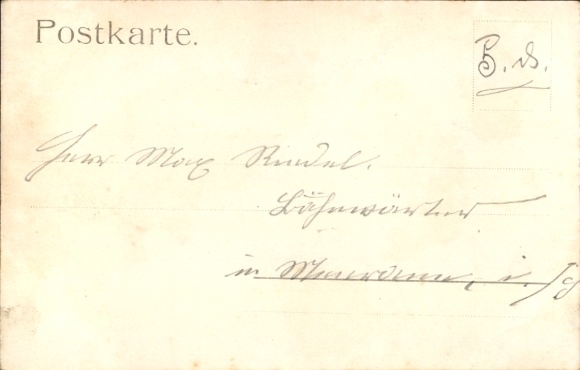 Postkarte.
B. d.
Herr Max Riedel.
Bahnwärter
in Meerane, i. S